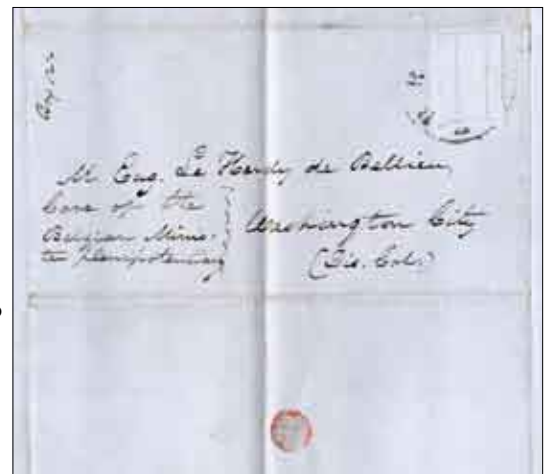 Mr Eug. Le Hardy de Bellieu,
Care of the
Belgian Minis-
ter plenipotentiary
Washington City
(Dis. Col.)